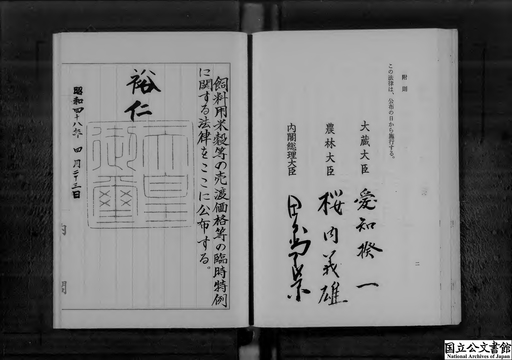 飼料用米穀等の売渡価格等の臨時特例
に関する法律をここに公布する。
裕仁
天皇
御璽
昭和四十八年四月二十三日
内閣
附則
この法律は、公布の日から施行する。
大蔵大臣 愛知揆一
農林大臣 桜内義雄
内閣総理大臣 田中角栄
二
国立公文書館
National Archives of Japan